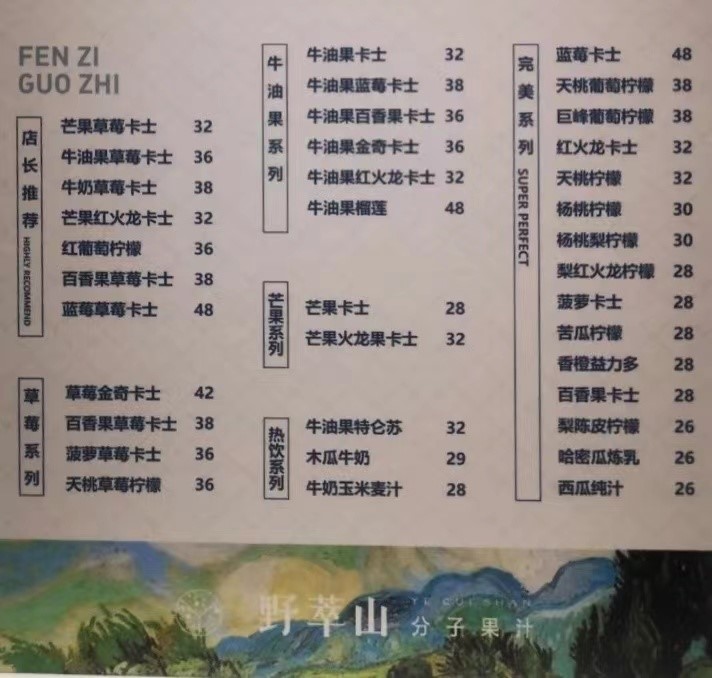 FEN ZI
GUO ZHI
店长推荐 HIGHLY RECOMMEND
芒果草莓卡士 32
牛油果草莓卡士 36
牛奶草莓卡士 38
芒果红火龙卡士 32
红葡萄柠檬 36
百香果草莓卡士 38
蓝莓草莓卡士 48
草莓系列
草莓金奇卡士 42
百香果草莓卡士 38
菠萝草莓卡士 36
天桃草莓柠檬 36
牛油果系列
牛油果卡士 32
牛油果蓝莓卡士 38
牛油果百香果卡士 36
牛油果金奇卡士 36
牛油果红火龙卡士 32
牛油果榴莲 48
芒果系列
芒果卡士 28
芒果火龙果卡士 32
热饮系列
牛油果特仑苏 32
木瓜牛奶 29
牛奶玉米麦汁 28
完美系列 SUPER PERFECT
蓝莓卡士 48
天桃葡萄柠檬 38
巨峰葡萄柠檬 38
红火龙卡士 32
天桃柠檬 32
杨桃柠檬 30
杨桃梨柠檬 30
梨红火龙柠檬 28
菠萝卡士 28
苦瓜柠檬 28
香橙益力多 28
百香果卡士 28
梨陈皮柠檬 26
哈密瓜炼乳 26
西瓜纯汁 26
野萃山
分子果汁